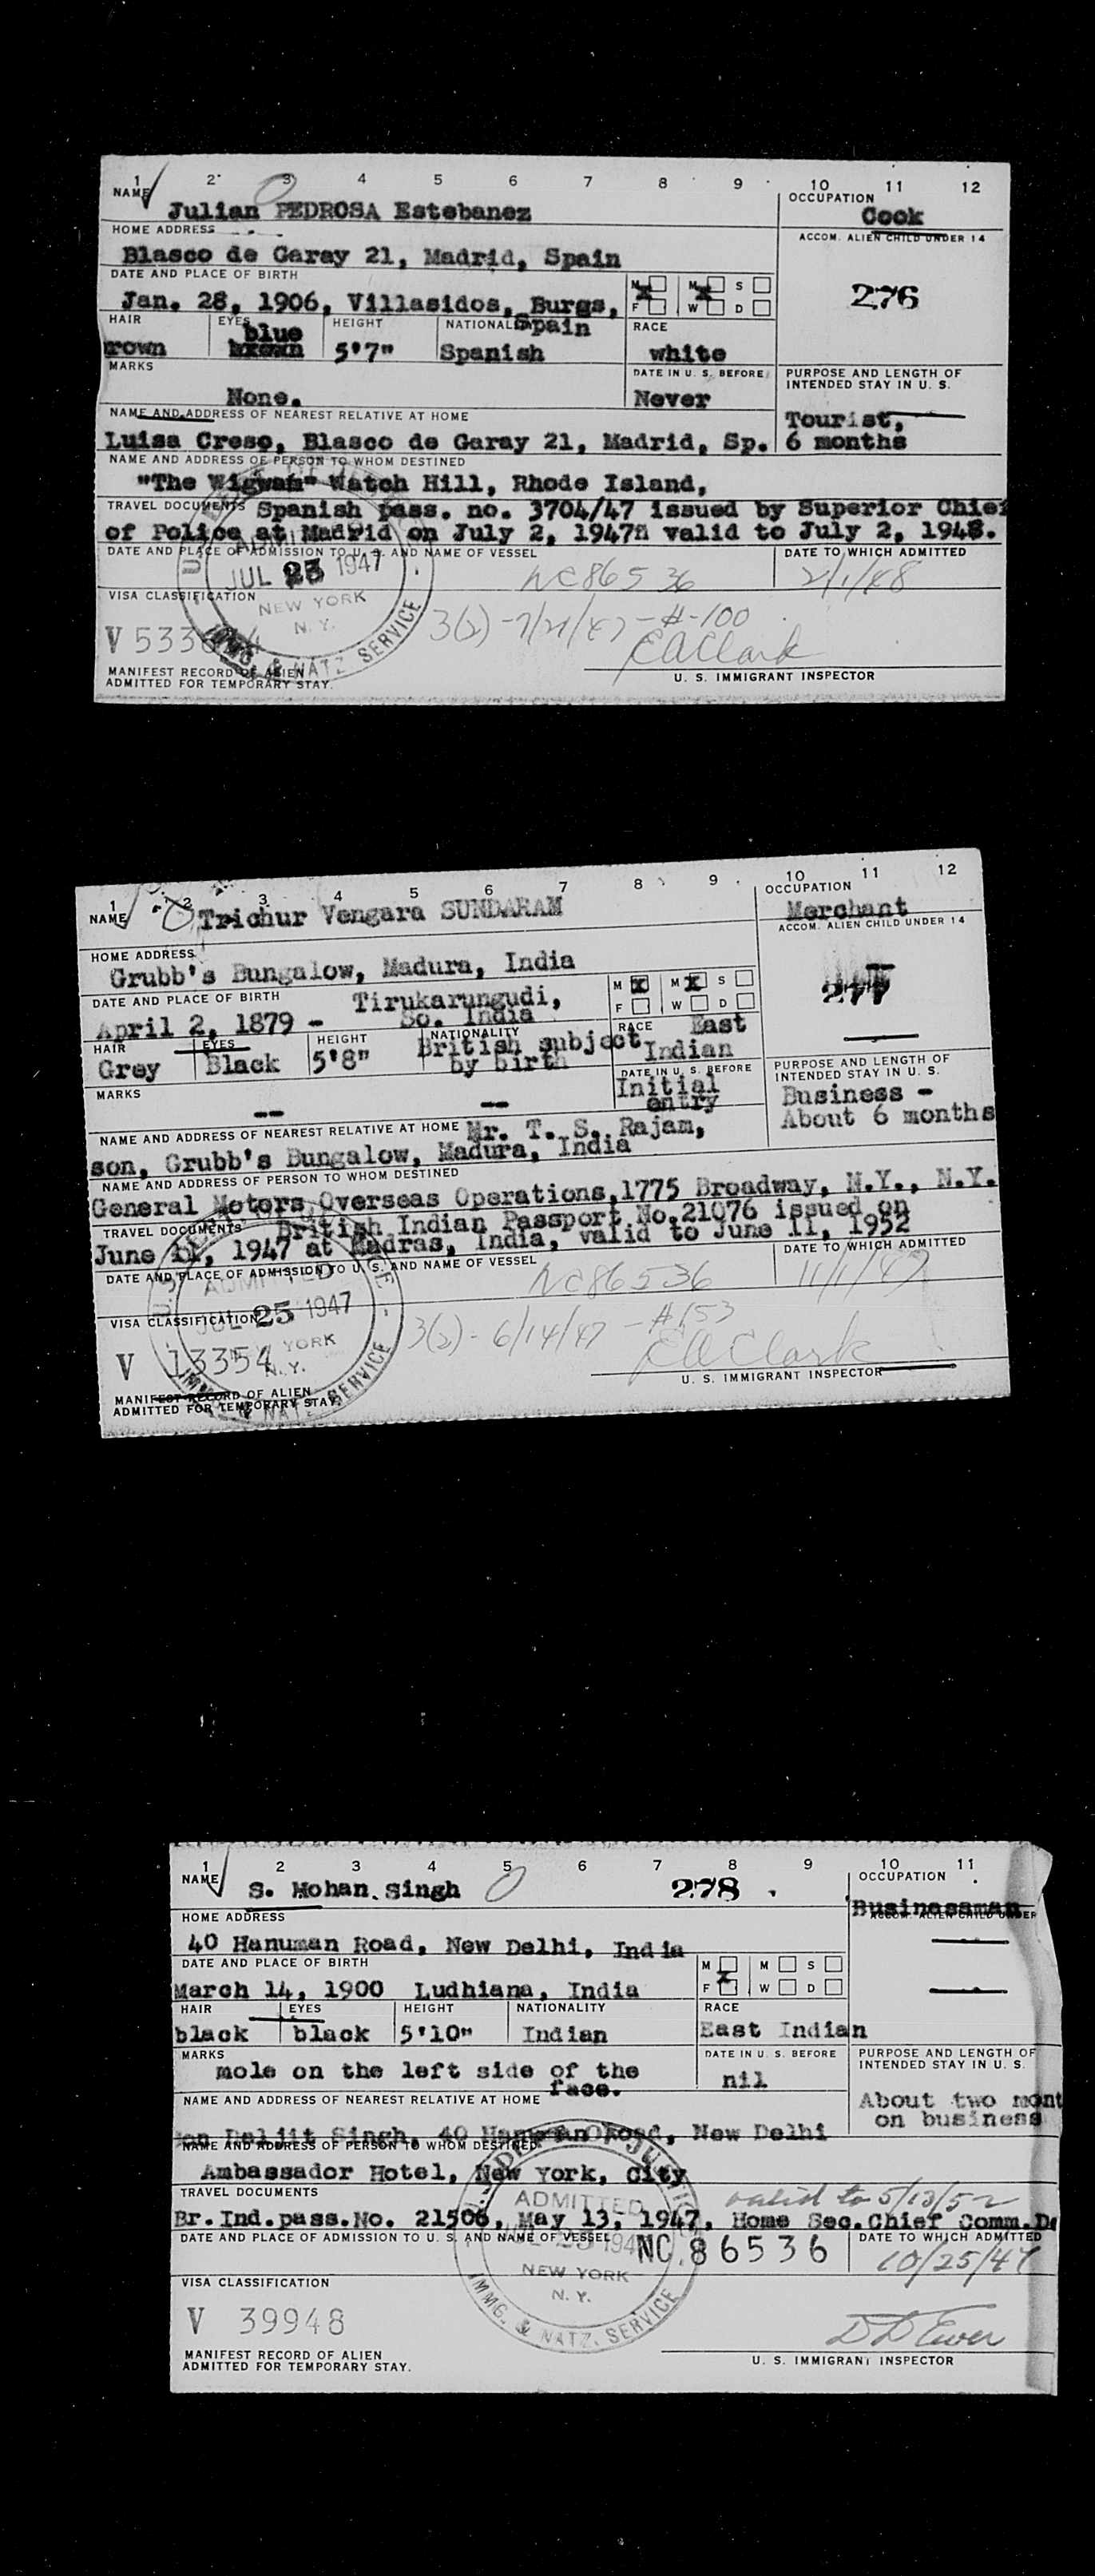 1 2 3 4 5 6 7 8 9 10 11 12
NAME OCCUPATION
Julian PEDROSA Estebanez Cook
HOME ADDRESS ACCOM. ALIEN CHILD UNDER 14
Blasco de Garay 21, Madrid, Spain
DATE AND PLACE OF BIRTH M M S
276
Jan. 28, 1906, Villasidos, Burgs, F W D
HAIR EYES HEIGHT NATIONAL Spain RACE
blue
rown brown 5'7" Spanish white
MARKS DATE IN U. S. BEFORE PURPOSE AND LENGTH OF
INTENDED STAY IN U. S.
None. Never
NAME AND ADDRESS OF NEAREST RELATIVE AT HOME Tourist,
Luisa Creso, Blasco de Garay 21, Madrid, Sp. 6 months
NAME AND ADDRESS OF PERSON TO WHOM DESTINED
"The Wigwam" Watch Hill, Rhode Island,
TRAVEL DOCUMENTS Spanish pass. no. 3704/47 issued by Superior Chief
of Police at Madrid on July 2, 1947 valid to July 2, 1948.
DATE AND PLACE OF ADMISSION TO U. S. AND NAME OF VESSEL DATE TO WHICH ADMITTED
JUL 1947 NC 86536 2/1/48
VISA CLASSIFICATION NEW YORK
N. Y.
3(2) - 7/21/47 - #-100
V 533
IMMG. & NATZ. SERVICE
E A Clark
MANIFEST RECORD OF ALIEN
ADMITTED FOR TEMPORARY STAY. U. S. IMMIGRANT INSPECTOR
1 2 3 4 5 6 7 8 9 10 11 12
NAME OCCUPATION
Trichur Vengara SUNDARAM Merchant
ACCOM. ALIEN CHILD UNDER 14
HOME ADDRESS
Grubb's Bungalow, Madura, India
DATE AND PLACE OF BIRTH Tirukarungudi, M M S
277
April 2, 1879 - So. India F W D
HAIR EYES HEIGHT NATIONALITY RACE East
Grey Black 5'8" British subject Indian
by birth
MARKS DATE IN U. S. BEFORE PURPOSE AND LENGTH OF
INTENDED STAY IN U. S.
-- -- Initial Business -
entry About 6 months
NAME AND ADDRESS OF NEAREST RELATIVE AT HOME Mr. T. S. Rajam,
son, Grubb's Bungalow, Madura, India
NAME AND ADDRESS OF PERSON TO WHOM DESTINED
General Motors Overseas Operations, 1775 Broadway, N.Y., N.Y.
TRAVEL DOCUMENTS British Indian Passport No. 21076 issued on
June 11, 1947 at Madras, India, valid to June 11, 1952
DATE AND PLACE OF ADMISSION TO U. S. AND NAME OF VESSEL DATE TO WHICH ADMITTED
ADMITTED NC 86536 11/1/47
VISA CLASSIFICATION JUL 25 1947
3(2) - 6/14/47 - #153
YORK
V 13354 N. Y.
IMMG. & NATZ. SERVICE
E A Clark
MANIFEST RECORD OF ALIEN
ADMITTED FOR TEMPORARY STAY. U. S. IMMIGRANT INSPECTOR
1 2 3 4 5 6 7 8 9 10 11
NAME OCCUPATION
S. Mohan Singh 278 Businessman
HOME ADDRESS ACCOM. ALIEN CHILD UNDER
40 Hanuman Road, New Delhi, India
DATE AND PLACE OF BIRTH M M S
March 14, 1900 Ludhiana, India F W D
HAIR EYES HEIGHT NATIONALITY RACE
black black 5'10" Indian East Indian
MARKS DATE IN U. S. BEFORE PURPOSE AND LENGTH OF
INTENDED STAY IN U. S.
mole on the left side of the nil
face.
NAME AND ADDRESS OF NEAREST RELATIVE AT HOME About two mont
on business
Daljit Singh, 40 Hanuman Road, New Delhi
NAME AND ADDRESS OF PERSON TO WHOM DESTINED
Ambassador Hotel, New York, City
TRAVEL DOCUMENTS ADMITTED valid to 5/13/52
Br. Ind. pass. No. 21506, May 13, 1947, Home Sec. Chief Comm. De
DATE AND PLACE OF ADMISSION TO U. S. AND NAME OF VESSEL NC 86536 DATE TO WHICH ADMITTED
10/25/47
NEW YORK
VISA CLASSIFICATION N. Y.
V 39948
IMMG. & NATZ. SERVICE
D D Ewer
MANIFEST RECORD OF ALIEN
ADMITTED FOR TEMPORARY STAY. U. S. IMMIGRANT INSPECTOR